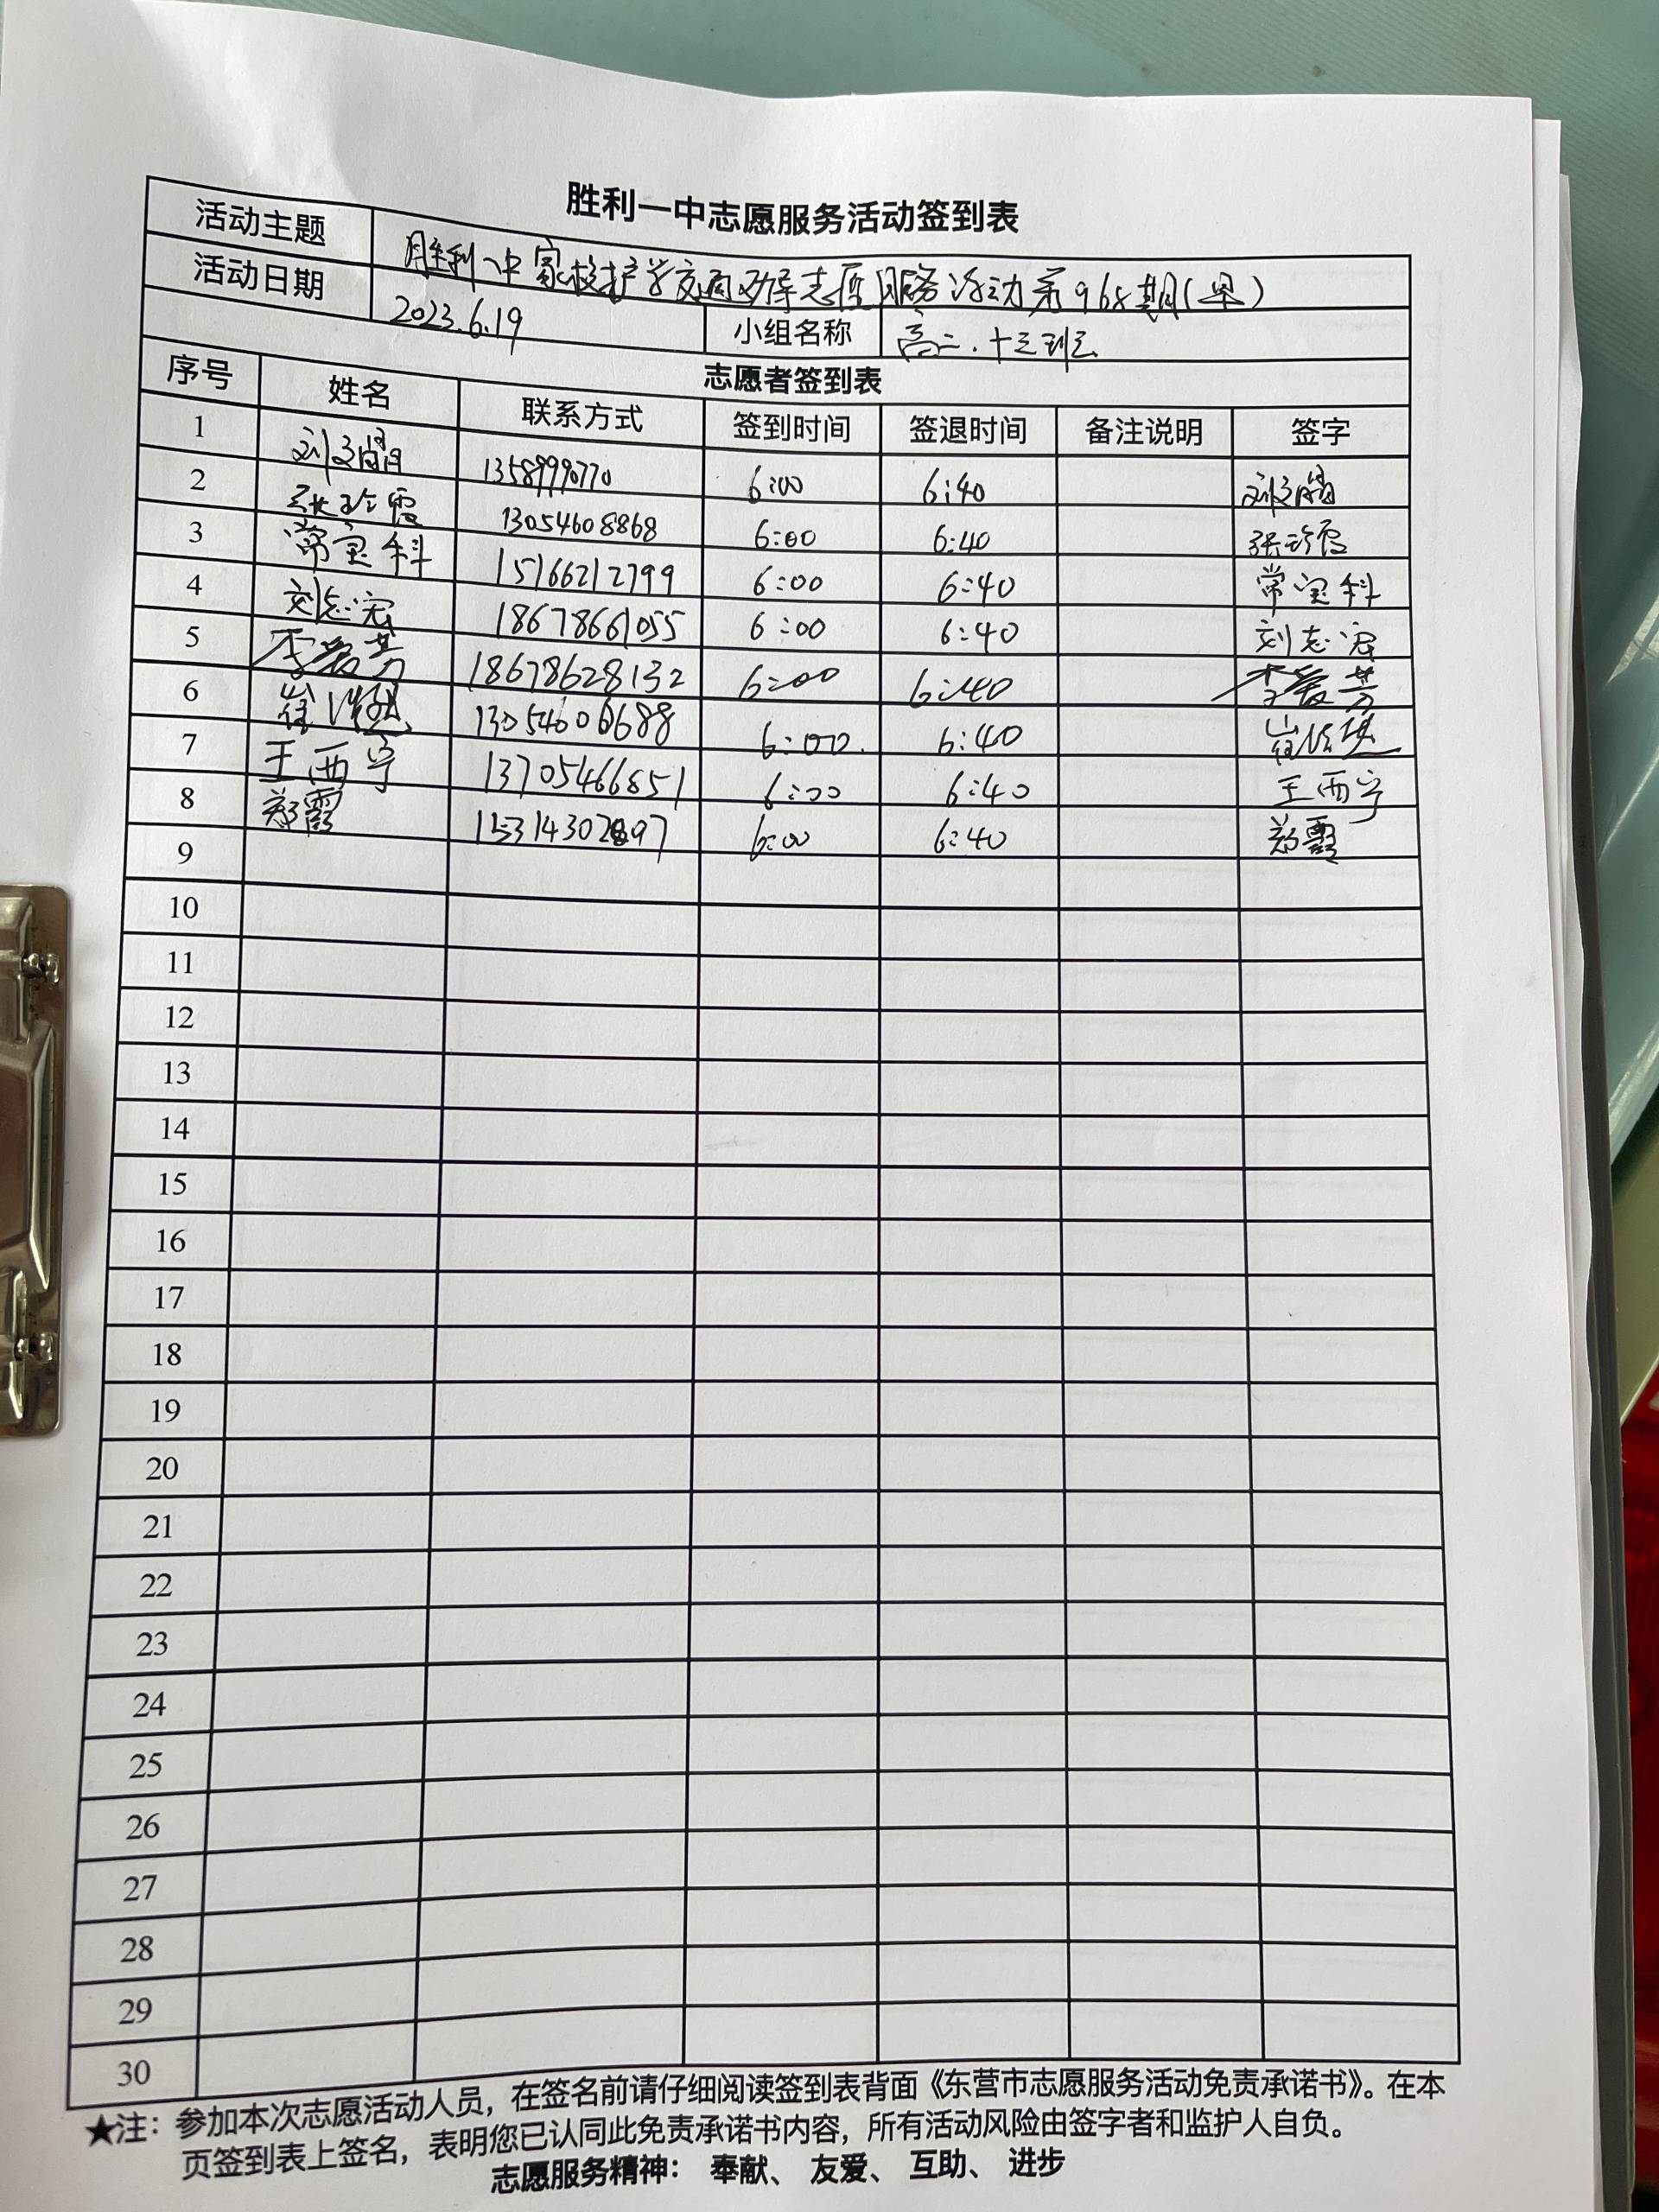 胜利一中志愿服务活动签到表
活动主题 胜利一中家校护学交通劝导志愿服务活动第968期(早)
活动日期 2023.6.19 小组名称 高二.十三班
志愿者签到表
序号 姓名 联系方式 签到时间 签退时间 备注说明 签字
1 刘文娟 13589990770 6:00 6:40 刘文娟
2 张珍霞 13054608868 6:00 6:40 张珍霞
3 常宝科 15166212799 6:00 6:40 常宝科
4 刘志宏 18678661055 6:00 6:40 刘志宏
5 李爱芳 18678628132 6:00 6:40 李爱芳
6 崔 13054606688 6:00 6:40 崔
7 王西宁 13705466851 6:00 6:40 王西宁
8 郑霞 6:00 6:40 郑霞
9
10
11
12
13
14
15
16
17
18
19
20
21
22
23
24
25
26
27
28
29
30
★注：参加本次志愿活动人员，在签名前请仔细阅读签到表背面《东营市志愿服务活动免责承诺书》。在本
页签到表上签名，表明您已认同此免责承诺书内容，所有活动风险由签字者和监护人自负。
志愿服务精神： 奉献、 友爱、 互助、 进步